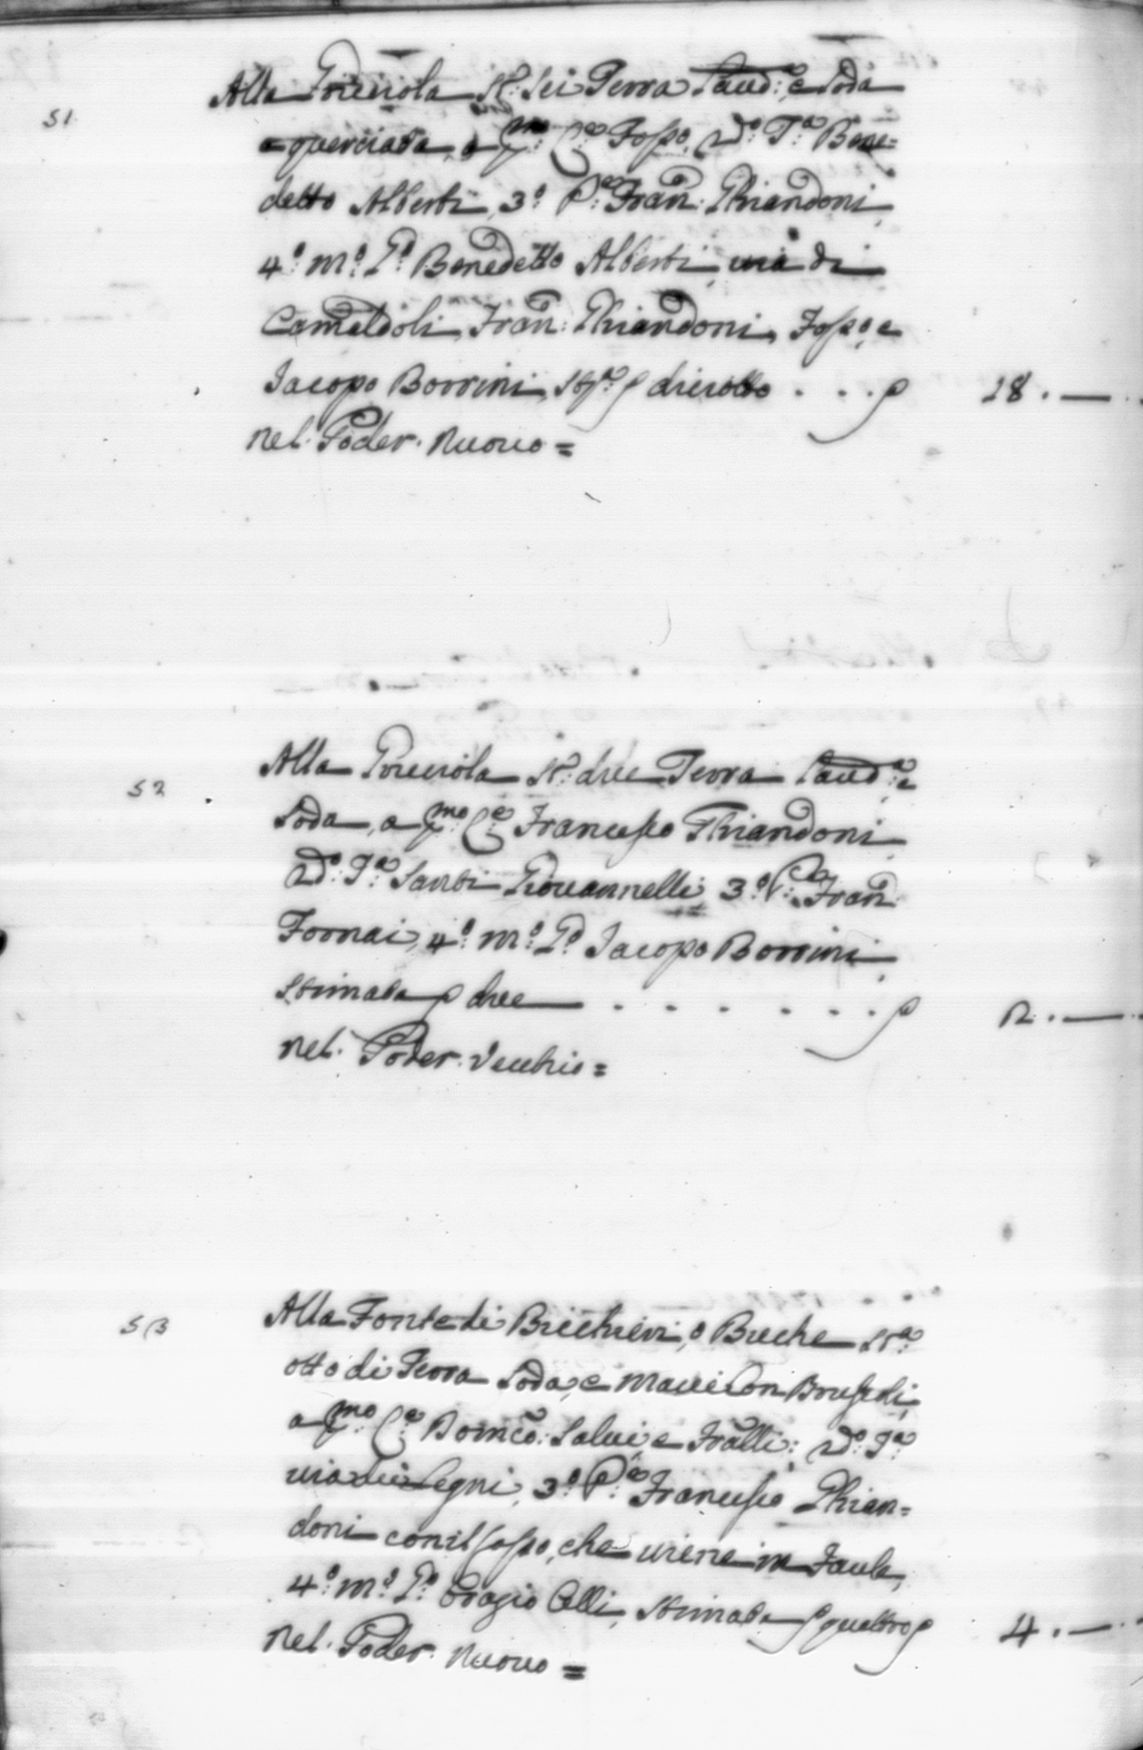 51
Alla Porcuola St: sei Terra Laud: e soda
e querciata, a p.mo C.e Fosso, 2do: T.a Bene=
detto Alberti, 3.o P.e Fran: Ghiandoni
4.o m.o P.o Benedetto Alberti, uia di
Camaldoli, Fran: Ghiandoni, Fosso, e
Jacopo Borrini, st.ta p diciotto . . . p 18 . —
nel. Poder. nuouo =
52
Alla Porcuola St: due Terra Laud:a e
soda, a p.mo C.e Francesco Ghiandoni
2do: T.a Santi Giouannelli, 3.o P.e Fran:
Fornai, 4.o m.o P.o Jacopo Borrini
stimata p due . . . . . . . p 2 . —
nel. Poder. Vecchio =
53
Alla Fonte di Bricchieri, o Breche St.a
otto di Terra soda, e macci con
a p.mo C.e Domco: Salui, e Fralli: 2do: T.a
uia dei Legni, 3.o P.e Francesco Ghian=
doni con il fosso, che uiene in
4.o m.o P.o Orazio Celli, stimata p quattro p 4 . —
nel. Poder. nuouo =